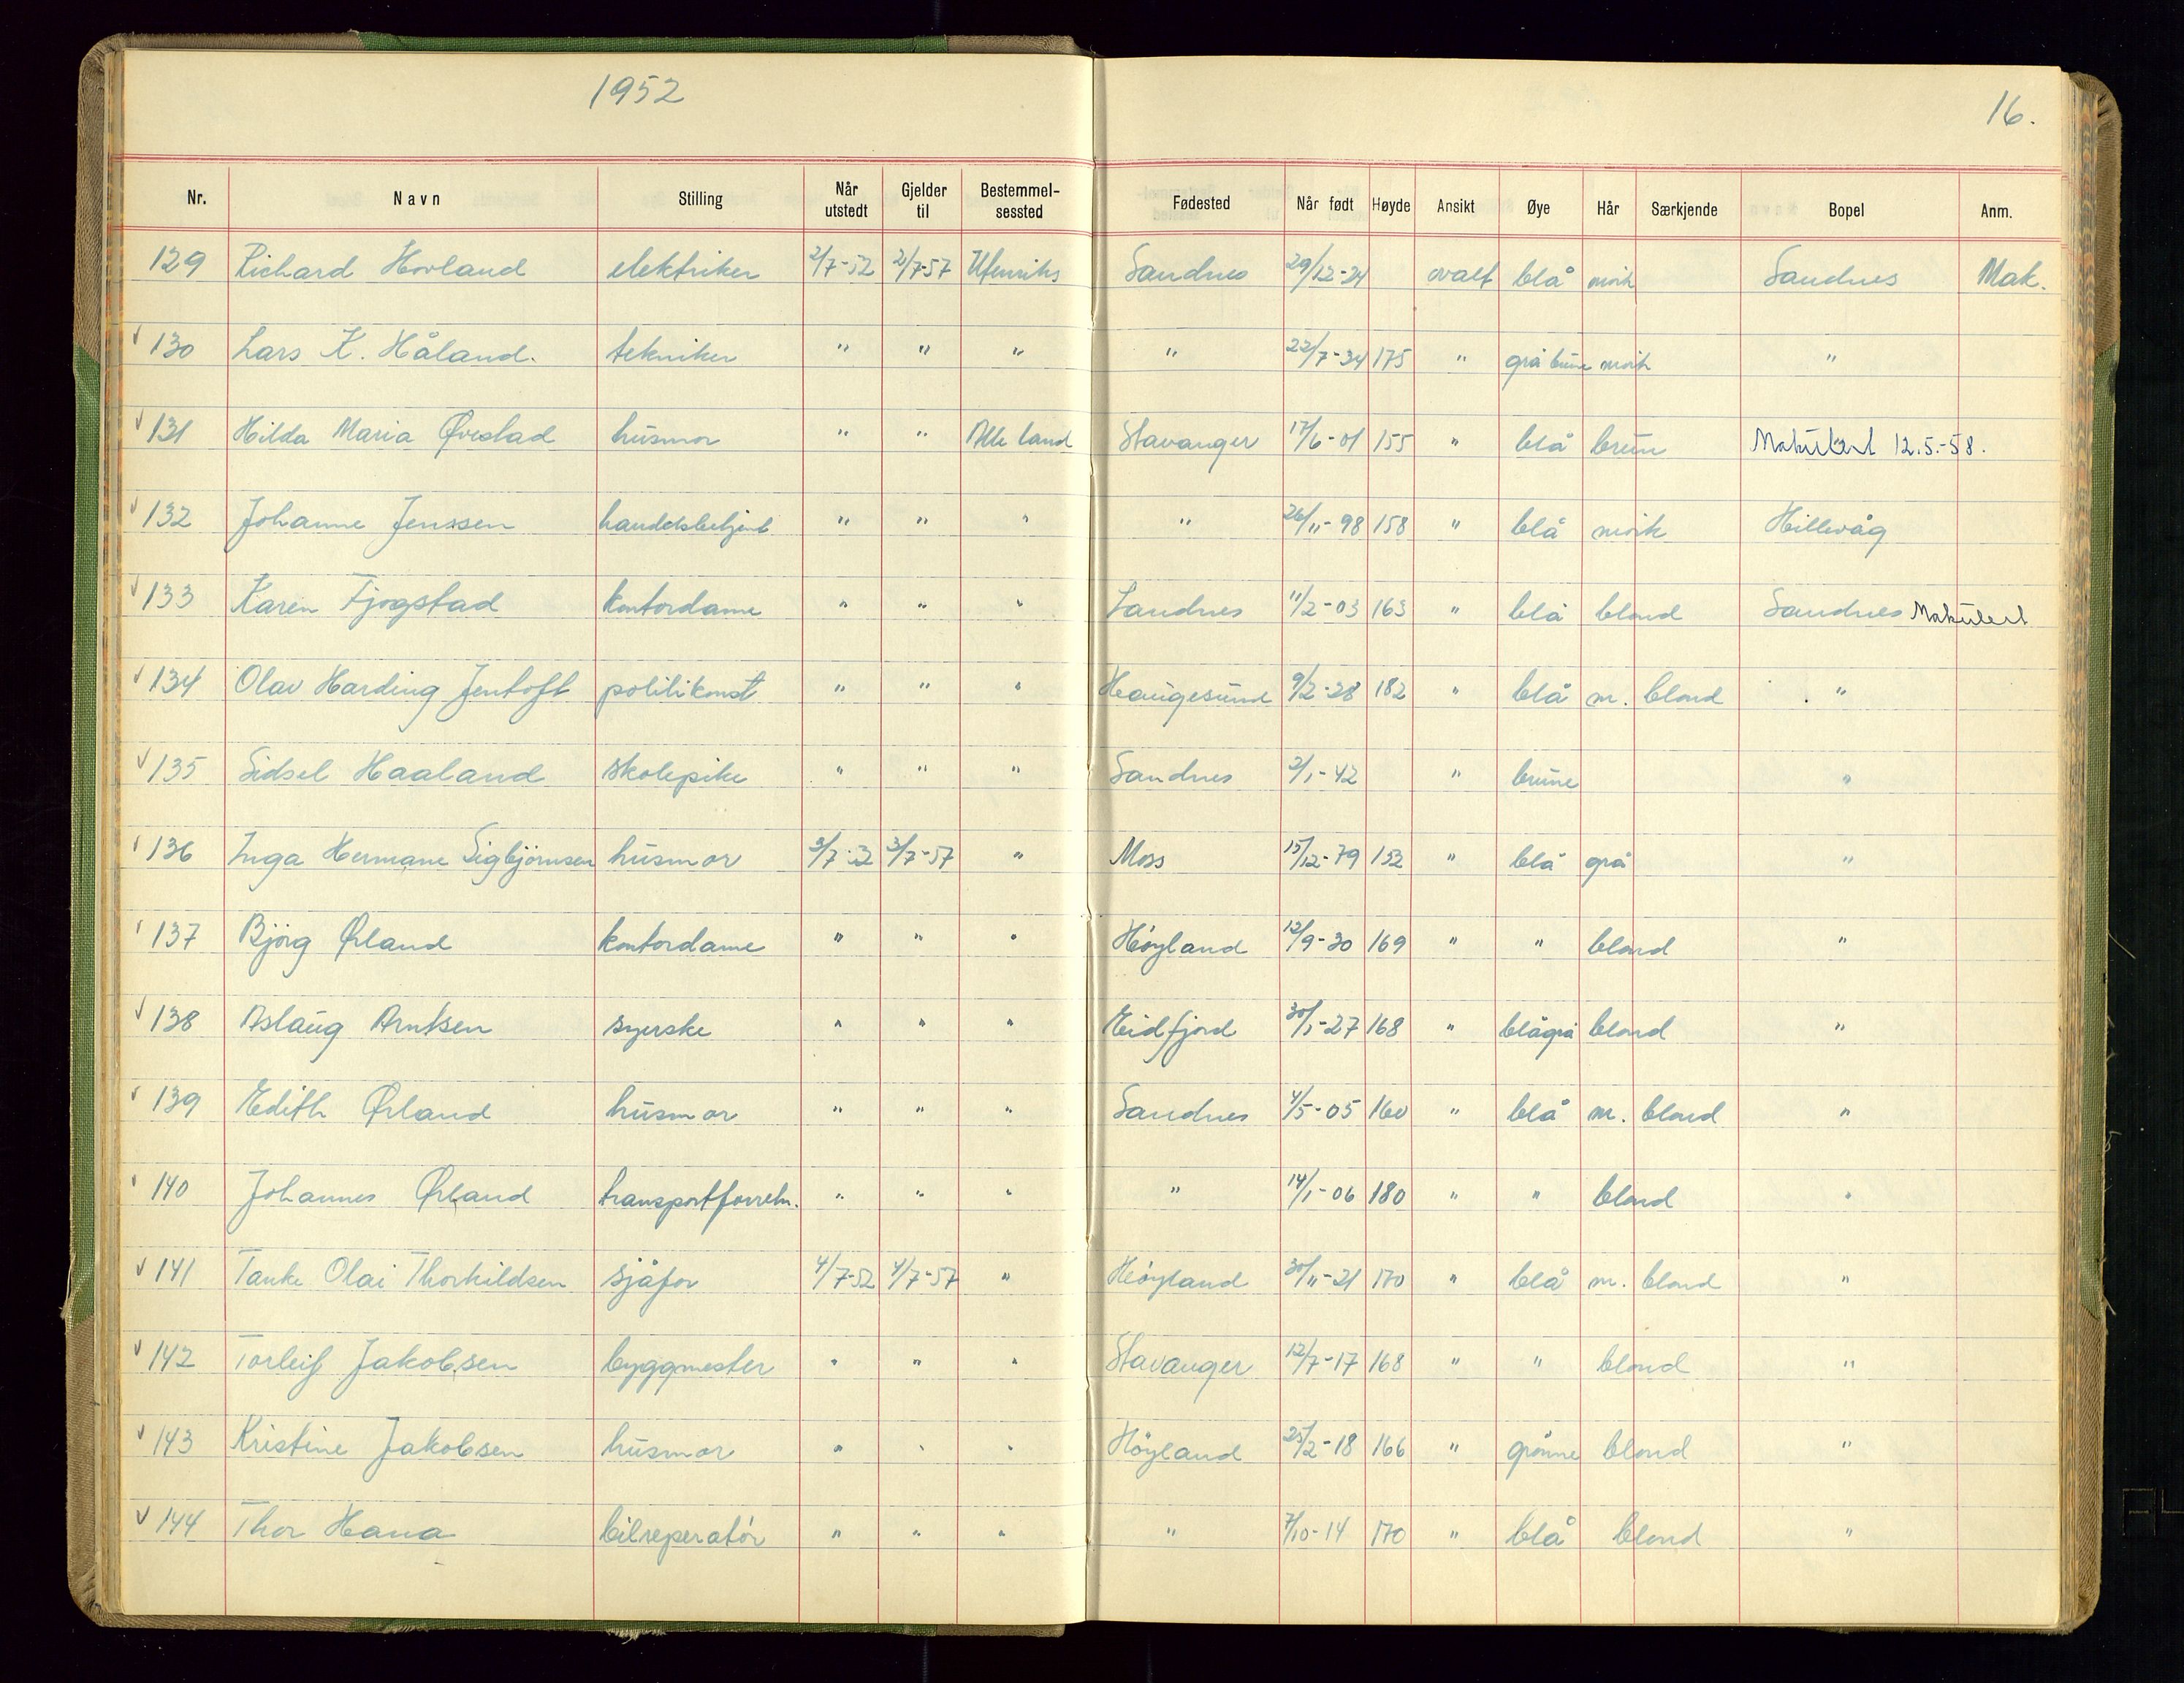 1952
16.
Nr. Navn Stilling Når utstedt Gjelder til Bestemmel-sessted Fødested Når født Høyde Ansikt Øye Hår Særkjende Bopel Anm.
129 Richard Hovland elektriker 2/7-52 2/7-57 Utenriks Sandnes 29/12-24 ovalt blå mørk Sandnes Mak.
130 Lars K. Håland. tekniker " " " " 22/7-34 175 " grå brune mørk "
131 Hilda Maria Øvestad husmor " " Alle land Stavanger 17/6-01 155 " blå brun Makulert 12.5.-58.
132 Johanne Jenssen handelsbetjent " " " " 26/11-98 158 " blå mörk Hillevåg
133 Karen Fjogstad kontordame " " " Sandnes 11/2-03 163 " blå blond Sandnes Makulert
134 Olav Harding Jentoft politikonst " " " Haugesund 9/2-28 182 " blå m. blond "
135 Sidsel Haaland skolepike " " " Sandnes 2/1-42 " brune "
136 Inga Hermane Sigbjörnsen husmor 3/7-52 3/7-57 " Moss 15/12-79 152 " blå grå "
137 Bjørg Ørland kontordame " " " Høyland 12/9-30 169 " " blond "
138 Aslaug Arntsen syerske " " " Eidfjord 30/1-27 168 " blågrå blond "
139 Edith Ørland husmor " " " Sandnes 4/5-05 160 " blå m. blond "
140 Johannes Ørland transportforretn. " " " " 14/1-06 180 " " blond "
141 Tanke Olai Thorkildsen sjåfør 4/7-52 4/7-57 " Høyland 30/11-21 170 " blå m. blond "
142 Torleif Jakobsen byggmester " " " Stavanger 12/7-17 168 " " blond "
143 Kristine Jakobsen husmor " " " Höyland 25/2-18 166 " grönne blond "
144 Thor Hana bilreperatör " " " " 7/10-14 170 " blå blond "